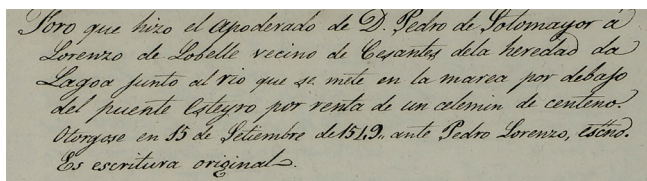 Foro que hizo el apoderado de D. Pedro de Sotomayor á
Lorenzo de Lobelle vecino de Cesantes dela heredad da
Lagoa junto al rio que se mete en la marea por debajo
del puente Esteyro por renta de un celemin de centeno.
Otorgose en 15 de Setiembre de 1549,, ante Pedro Lorenzo, escno.
Es escritura original.